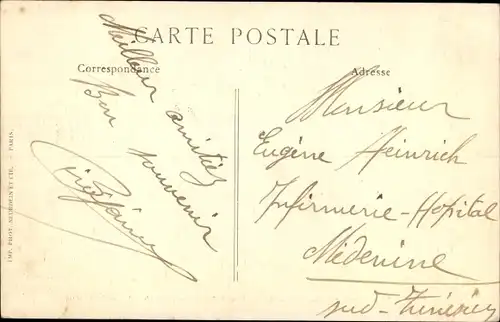 CARTE POSTALE
Correspondance
Adresse
Meilleur amitiés
Bon souvenir
Monsieur
Eugène Heinrich
Infirmerie-Hopital
Médenine
sud-Tunisien
IMP. PHOT. NEURDEIN ET CIE. — PARIS.